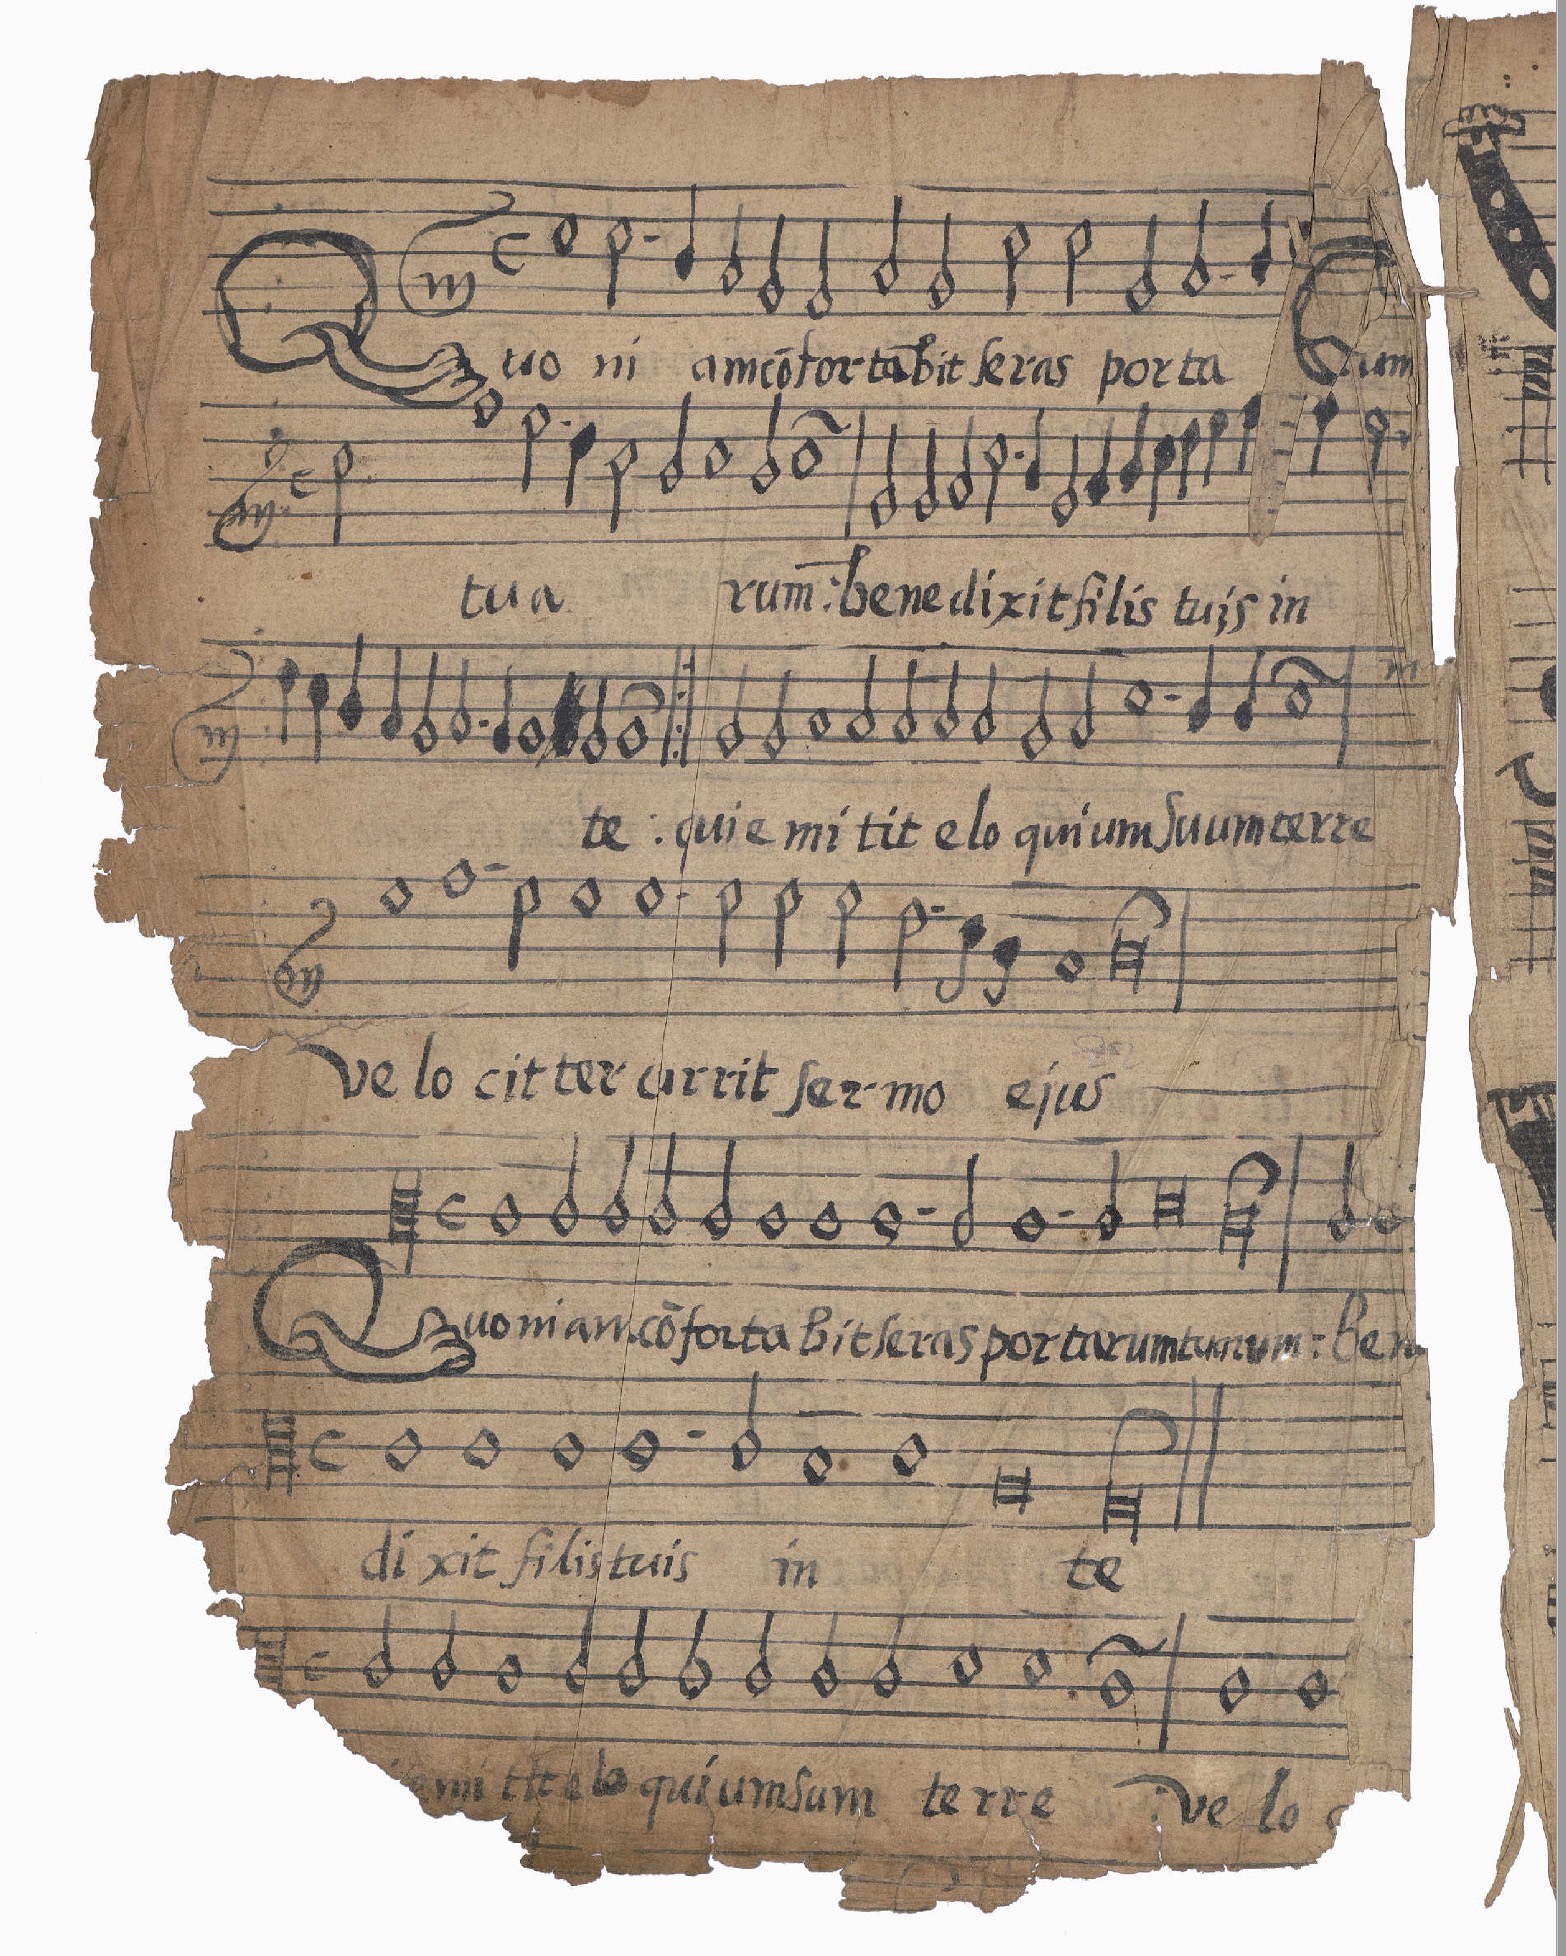 Quo ni am cōfortabit seras porta
tua rum : bene dixit filis tuis in
te : qui e mi tit elo quium suum terre
velo citter currit sermo ejus
Quoniam cōforta bit seras portarum tuarum : ben
di xit filis tuis in te
emi tit elo quium sum terre : ve lo